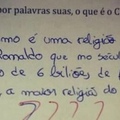 por palavras suas, o que é o C
mo é uma religião
Ronaldo que no séc
o de 6 biliões de p
a maior religião do
????